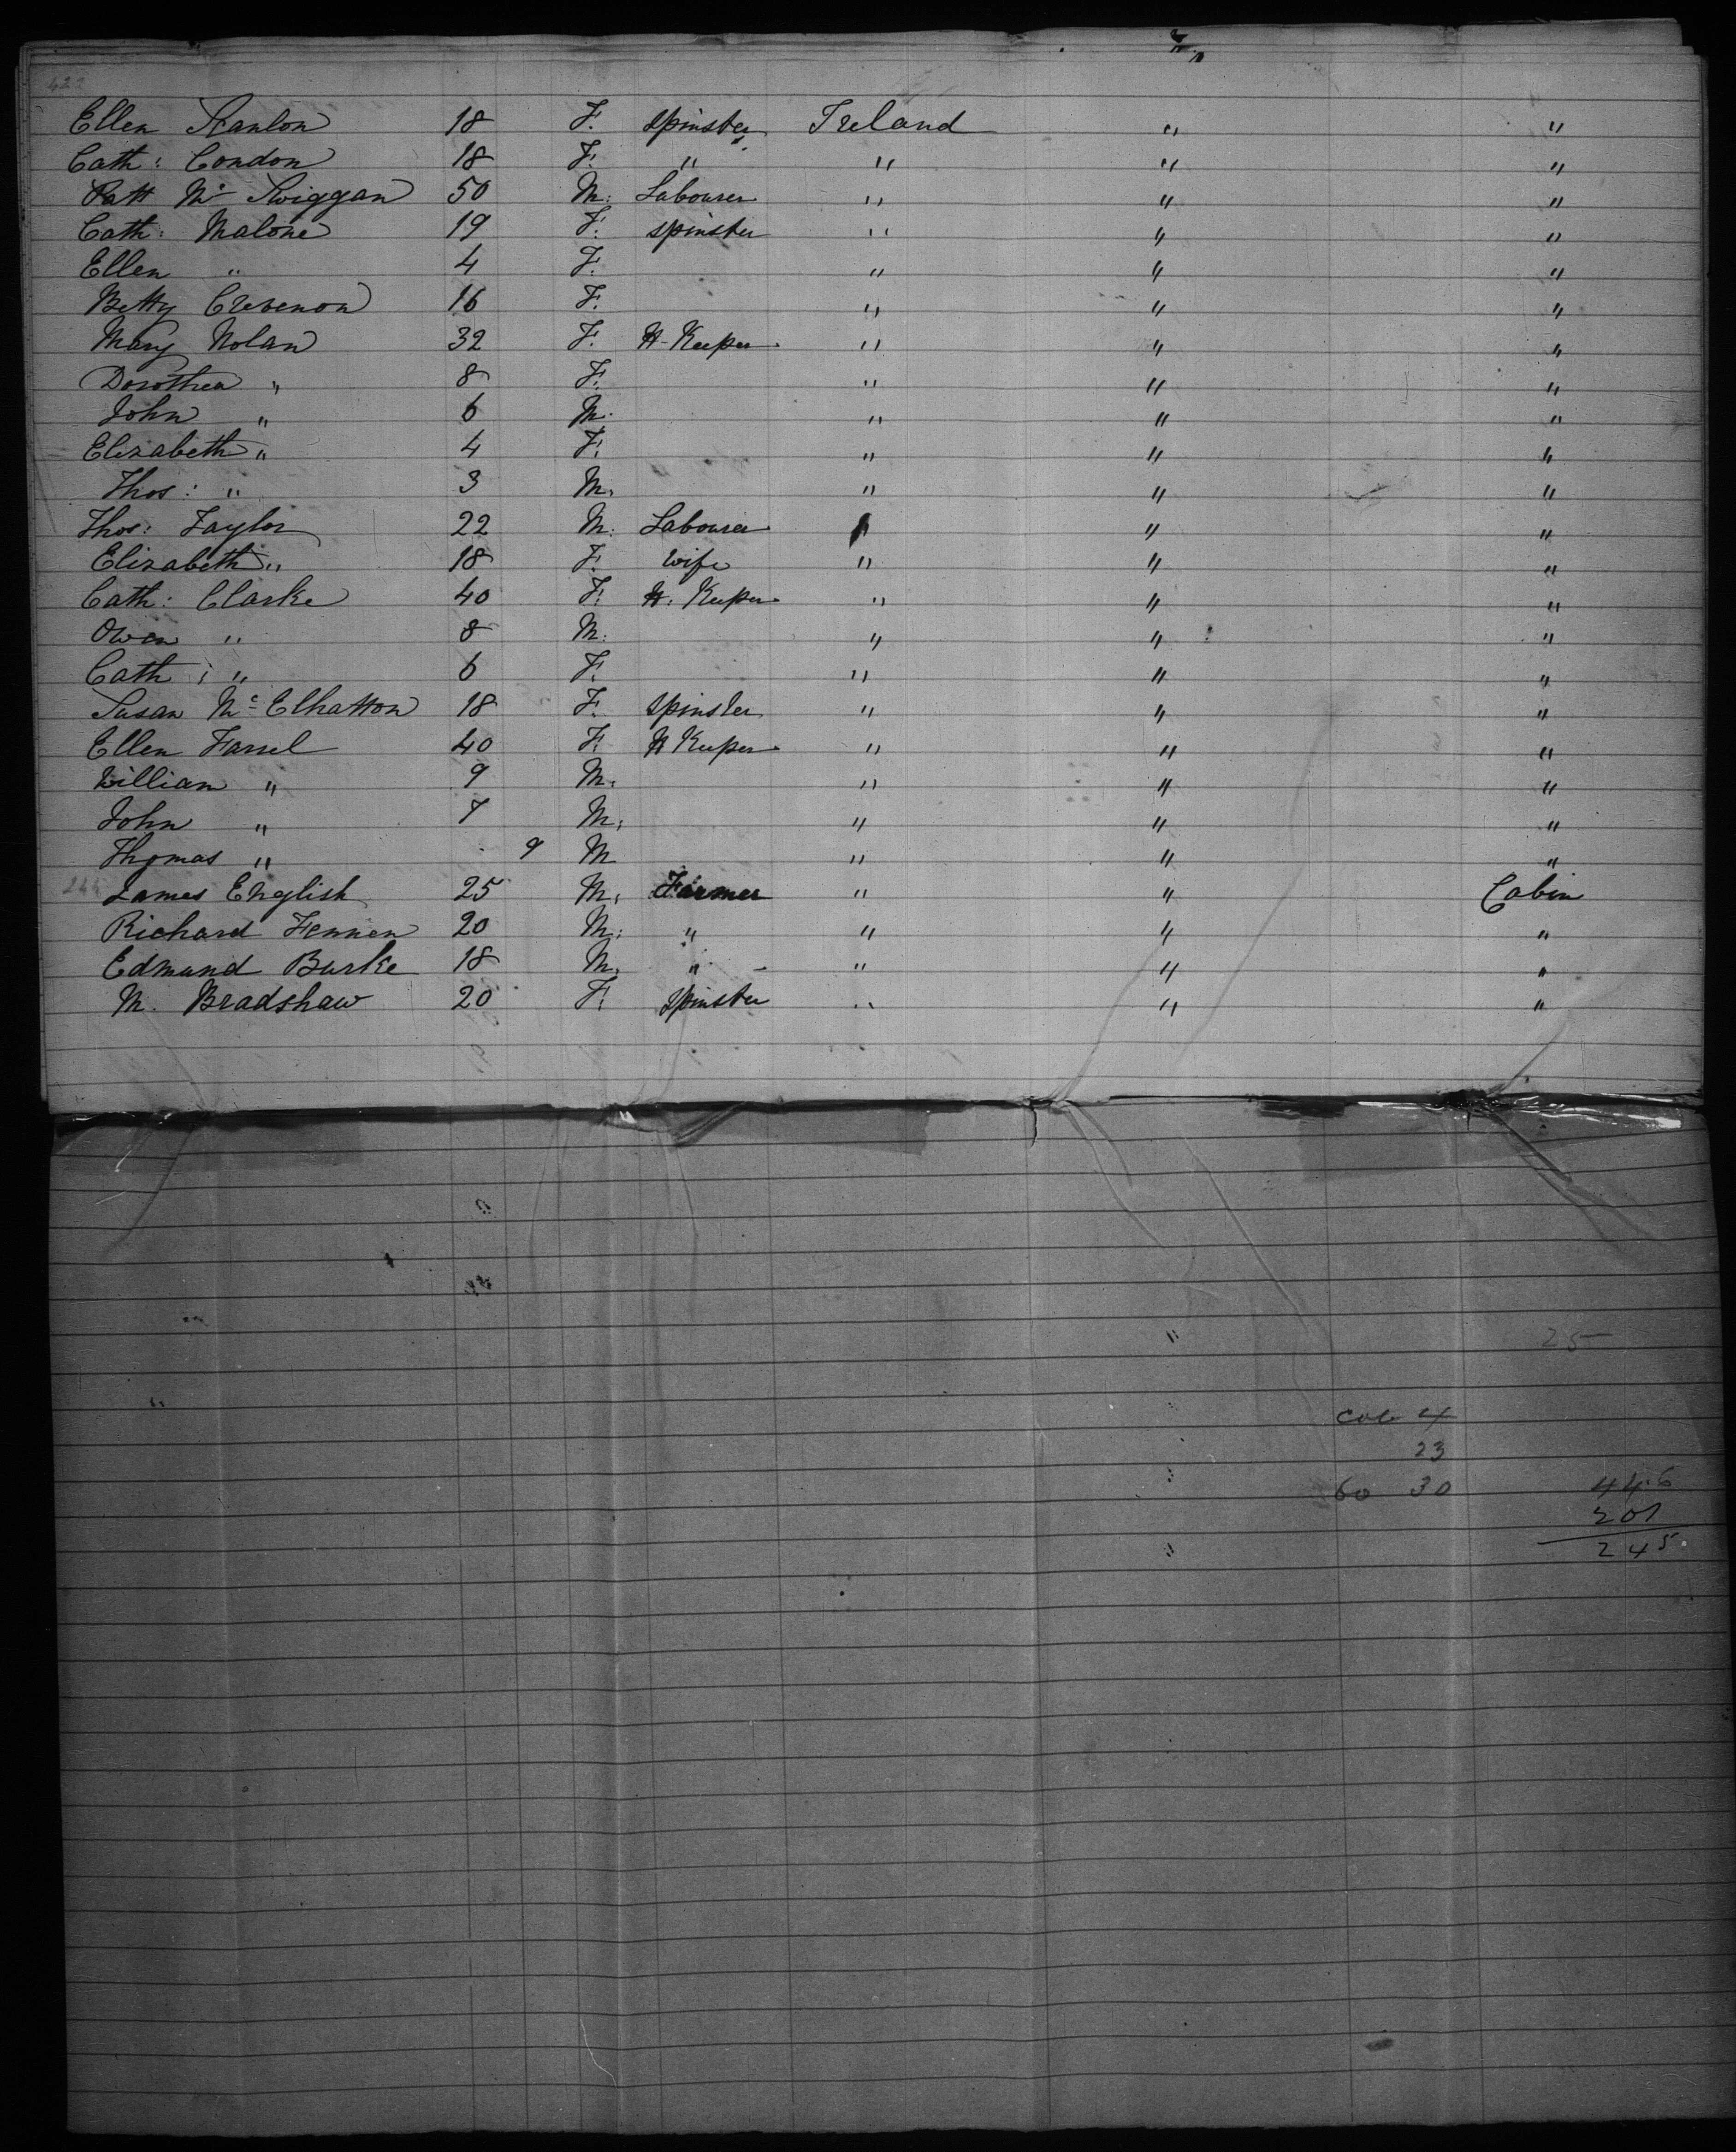 422
Ellen Scanlon 18 F. Spinster Ireland " "
Cath: Condon 18 F. " " " "
Patt Mc Swiggan 50 M: Labourer " " "
Cath: Malone 19 F. Spinster " " "
Ellen " 4 F. " " "
Betty Crevenon 16 F. " " "
Mary Nolan 32 F. H-Keeper " " "
Dorothea " 8 F. " " "
John " 6 M. " " "
Elizabeth " 4 F. " " "
Thos: " 3 M. " " "
Thos: Taylor 22 M. Labourer " " "
Elizabeth " 18 F. Wife " " "
Cath: Clarke 40 F. H. Keeper " " "
Owen " 8 M. " " "
Cath: " 6 F. " " "
Susan Mc Elhatton 18 F. Spinster " " "
Ellen Farrel 40 F. H Keeper " " "
William " 9 M. " " "
John " 7 M. " " "
Thomas " 9 M " " "
244 James English 25 M. Farmer " " Cabin
Richard Fennen 20 M. " " " "
Edmund Burke 18 M. " " " "
M. Bradshaw 20 F. Spinster " " "
25
4
23
60 30 446
201
245